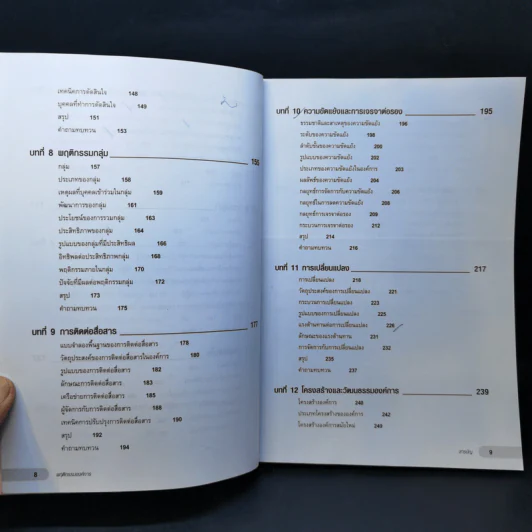 เทคนิคการตัดสินใจ 148
บุคคลที่ทำการตัดสินใจ 149
สรุป 151
คำถามทบทวน 153
บทที่ 8 พฤติกรรมกลุ่ม 155
กลุ่ม 157
ประเภทของกลุ่ม 158
เหตุผลที่บุคคลเข้าร่วมในกลุ่ม 159
พัฒนาการของกลุ่ม 161
ประโยชน์ของการรวมกลุ่ม 163
ประสิทธิภาพของกลุ่ม 164
รูปแบบของกลุ่มที่มีประสิทธิผล 166
อิทธิพลต่อประสิทธิภาพกลุ่ม 168
พฤติกรรมภายในกลุ่ม 170
ปัจจัยที่มีผลต่อพฤติกรรมกลุ่ม 172
สรุป 173
คำถามทบทวน 175
บทที่ 9 การติดต่อสื่อสาร 177
แบบจำลองพื้นฐานของการติดต่อสื่อสาร 178
วัตถุประสงค์ของการติดต่อสื่อสารในองค์การ 180
รูปแบบของการติดต่อสื่อสาร 182
ลักษณะการติดต่อสื่อสาร 183
เครือข่ายการติดต่อสื่อสาร 185
ผู้จัดการกับการติดต่อสื่อสาร 188
เทคนิคการปรับปรุงการติดต่อสื่อสาร 190
สรุป 192
คำถามทบทวน 194
8 พฤติกรรมองค์การ
บทที่ 10 ความขัดแย้งและการเจรจาต่อรอง 195
ธรรมชาติและสาเหตุของความขัดแย้ง 196
ระดับของความขัดแย้ง 198
ลำดับขั้นของความขัดแย้ง 200
รูปแบบของความขัดแย้ง 202
ประเภทของความขัดแย้งในองค์การ 203
ผลลัพธ์ของความขัดแย้ง 204
กลยุทธ์การจัดการกับความขัดแย้ง 206
กลยุทธ์ในการลดความขัดแย้ง 208
กลยุทธ์การเจรจาต่อรอง 209
กระบวนการเจรจาต่อรอง 212
สรุป 214
คำถามทบทวน 216
บทที่ 11 การเปลี่ยนแปลง 217
การเปลี่ยนแปลง 218
วัตถุประสงค์ของการเปลี่ยนแปลง 221
กระบวนการเปลี่ยนแปลง 223
รูปแบบของการเปลี่ยนแปลง 225
แรงต้านทานต่อการเปลี่ยนแปลง 226
ลักษณะของแรงต้านทาน 231
การจัดการกับการเปลี่ยนแปลง 232
สรุป 235
คำถามทบทวน 237
บทที่ 12 โครงสร้างและวัฒนธรรมองค์การ 239
โครงสร้างองค์การ 240
ประเภทโครงสร้างขององค์การ 242
โครงสร้างองค์การสมัยใหม่ 249
สารบัญ 9